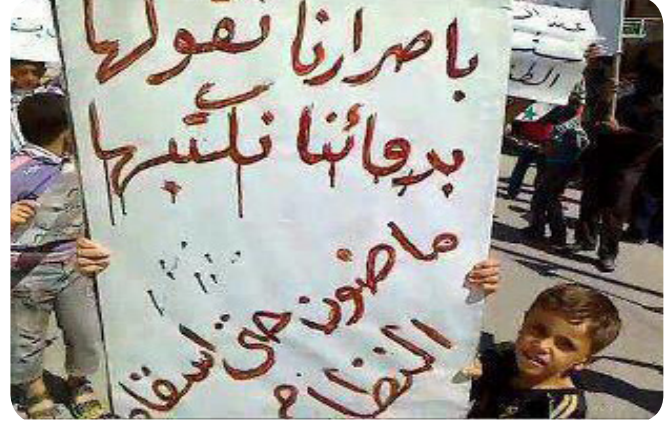 باصرارنا نقولها
بدمائنا نكتبها
ماضون حتى اسقاط
النظام